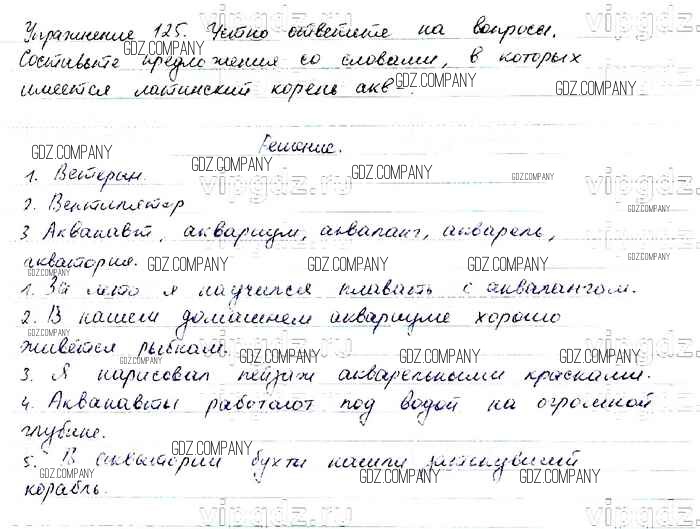 Упражнение 125. Устно ответьте на вопросы.
Составьте предложения со словами, в которых
имеется латинский корень акв-.
Решение.
1. Ветеран.
2. Вентилятор
3. Акванавт, аквариум, акваланг, акварель,
акватория.
1. За лето я научился плавать с аквалангом.
2. В нашем домашнем аквариуме хорошо
живётся рыбкам.
3. Я нарисовал пейзаж акварельными красками.
4. Акванавты работают под водой на огромной
глубине.
5. В акватории бухты нашли затонувший
корабль.